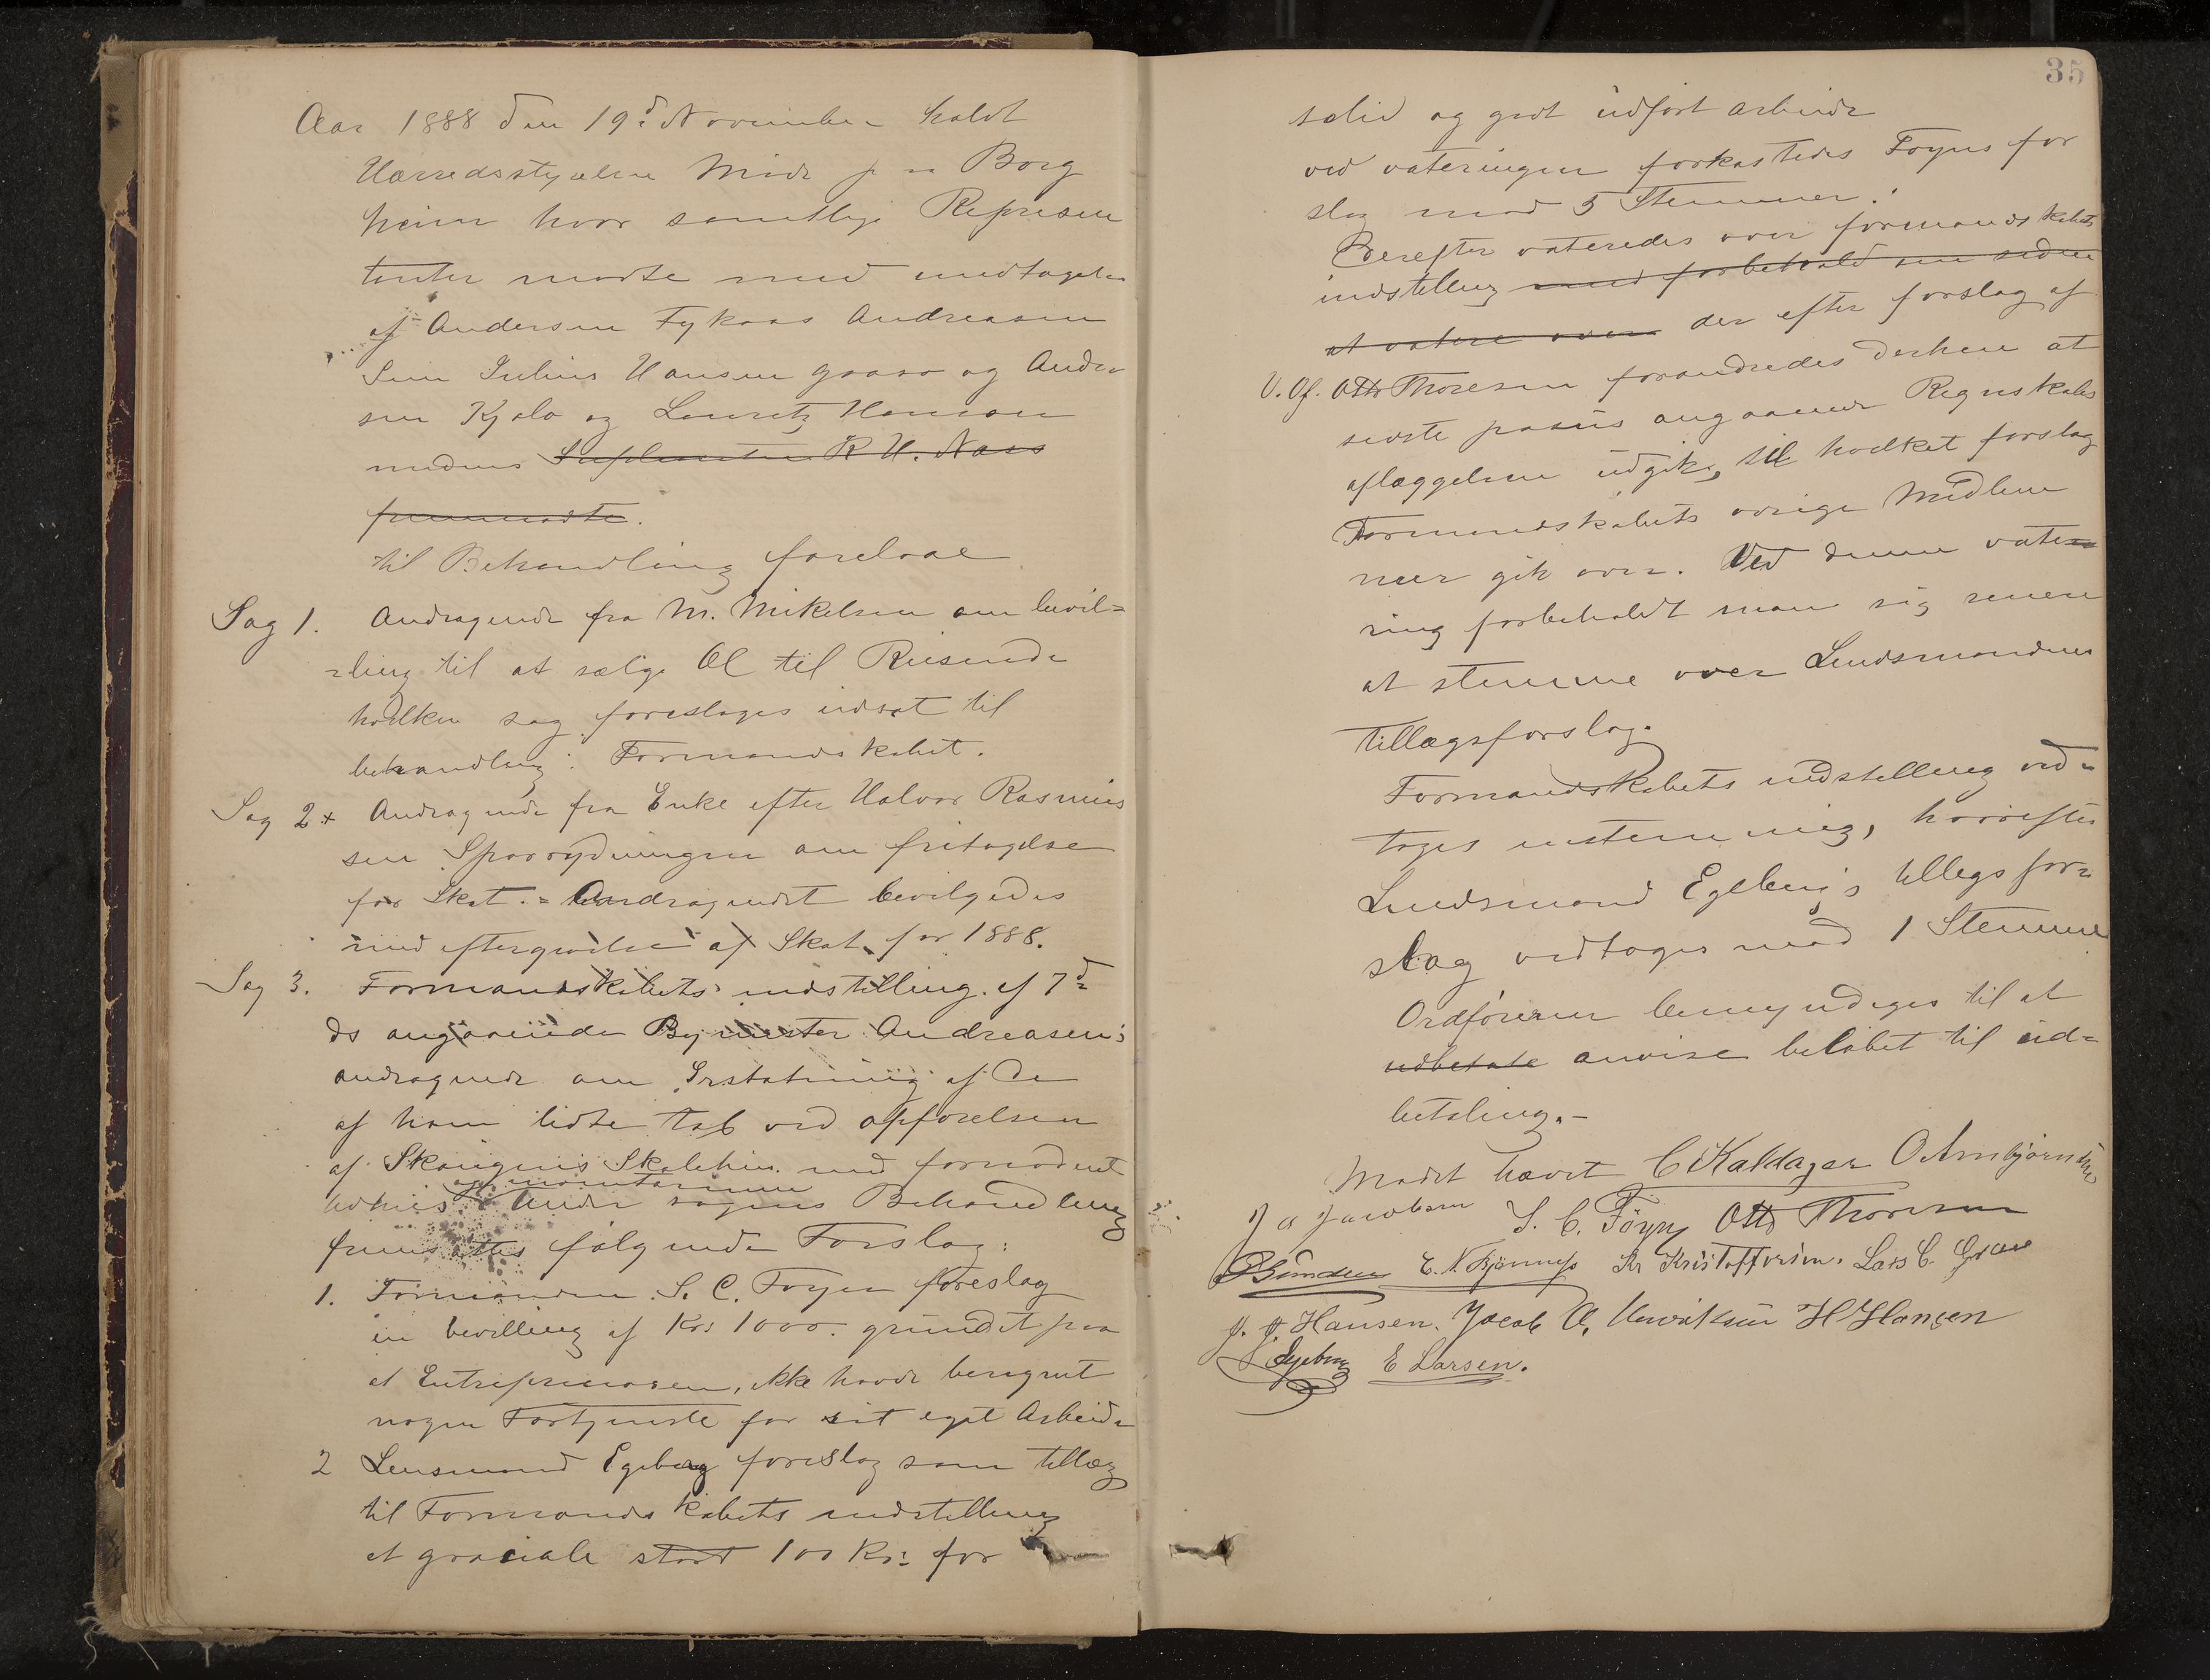 Aar 1888 den 19d November holdt
Herredsstyrelsen Møde paa Borg
heim hvor samtlige Represen
tanter mødte med undtagelse
af Andersen Fykaas Andreasen
Julius Hansen Graao og Ander
sen Kjølo og Lauritz Hanson
medens Suplianten R H. Næss
fremmødte.
til Behandling forelaae
Sag 1. Andragende fra M. Mikelsen om bevil=
=ling til at sælge Øl til Reisende
hvilken sag foreslages udsat til
behandling i Formandskabet.
Sag 2 Andragende fra Enke efter Halvor Rasmus
sen Sporrydningen om fritagelse
for Skat. = Andragendet bevilgedes
med eftergivelse af Skat for 1888.
Sag 3. Formandskabets indstilling af 7d
ds angaaende Bymester Andreasens
andragende om Erstatning af de
af ham lidte tab ved opførelsen
af Skougnes Skolehus med fornødent
udhus og inventarium Under sagens Behandling
fremsattes følgende Forslag:
1. Formanden S. C. Foyen foreslog
en bevilling af Krs 1000. grundet paa
at Entreprenøren, ikke havde beregnet
nogen Fortjeneste for sit eget Arbeide
2 Lensmand Egeberg foreslog som tillæg
til Formandskabets indstilling
et graciale stort 100 Kr: for
35
solid og godt udført arbeide
ved voteringen forkastedes Foyns for
slag mod 5 Stemmer.
Derefter voteredes over formandskabets
indstilling med forbehold om siden
at votere over der efter forslag af
V. Of. Otto Thoresen forandredes derhen at
sidste passus angaaende Regnskabs
aflæggelsen udgik, til hvilket forslag
Formandskabets øvrige Medlem
mer gik over. Ved denne vote
ring forbeholdt man sig senere
at stemme over Lensmandens
Tillægsforslag.
Formandskabets indstilling ved=
toges enstemmig, hvorefter
Lensmand Egeberg's tillegsfor=
slag vedtoges mod 1 Stemme
Ordføreren bemyndiges til at
udbetale anvise beløbet til ud=
betaling.-
Mødet hævet C Kaldager O Arnbjørnsen
J A Jacobsen S. C. Föyn Otto Thoresen
E. N. Bjønness Kr Kristoffersen. Lars C. Graae
J. J. Hansen. Jacob A. Henriksen H Hansen
Egeberg E Larsen.